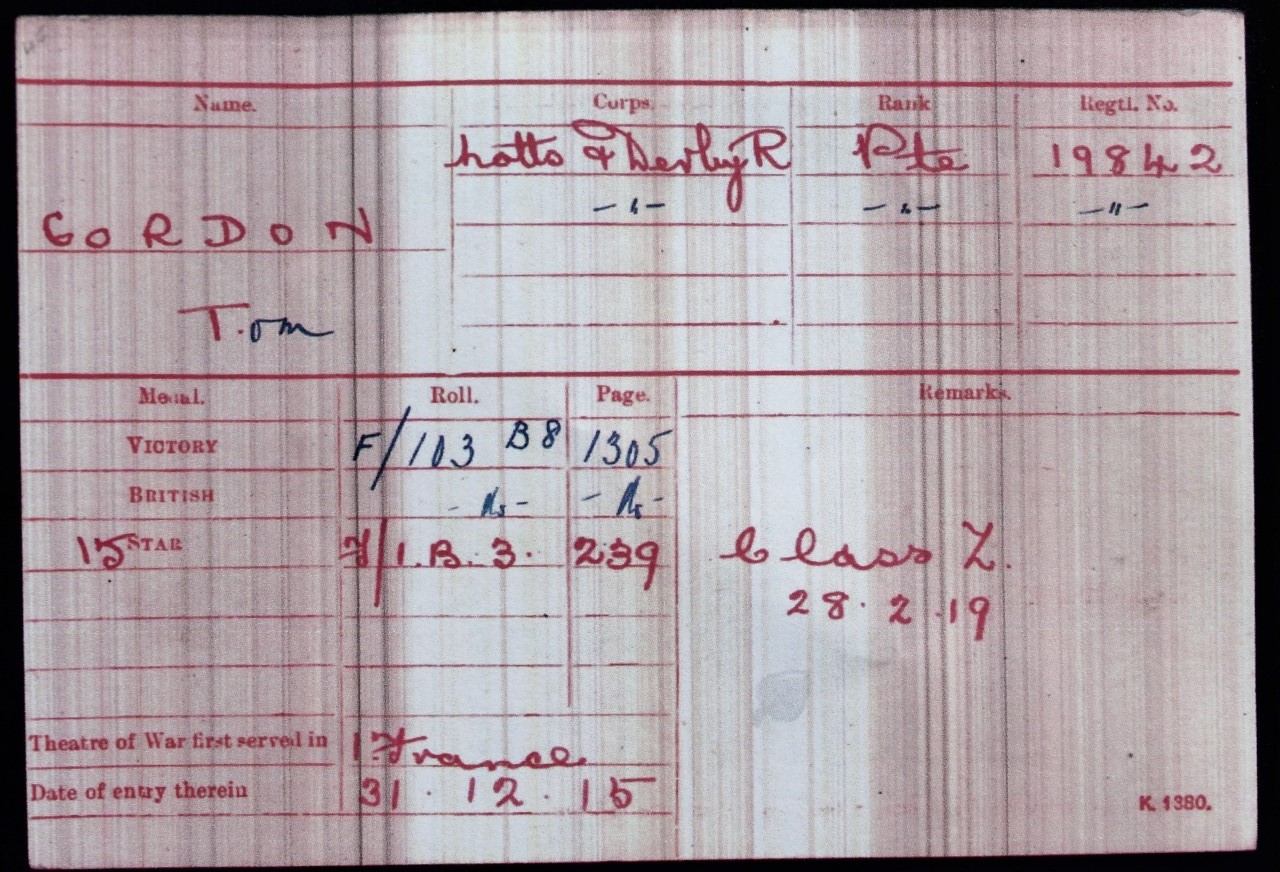 Name. Corps. Rank Regtl. No.
Notts & Derby R Pte 19842
—"— —"— —"—
GORDON
T.om
Medal. Roll. Page. Remarks.
VICTORY F/103 B8 1305
BRITISH - do - - do -
15 STAR F/1.B.3. 239 Class Z.
28.2.19
Theatre of War first served in 1. France
Date of entry therein 31.12.15
K. 1380.